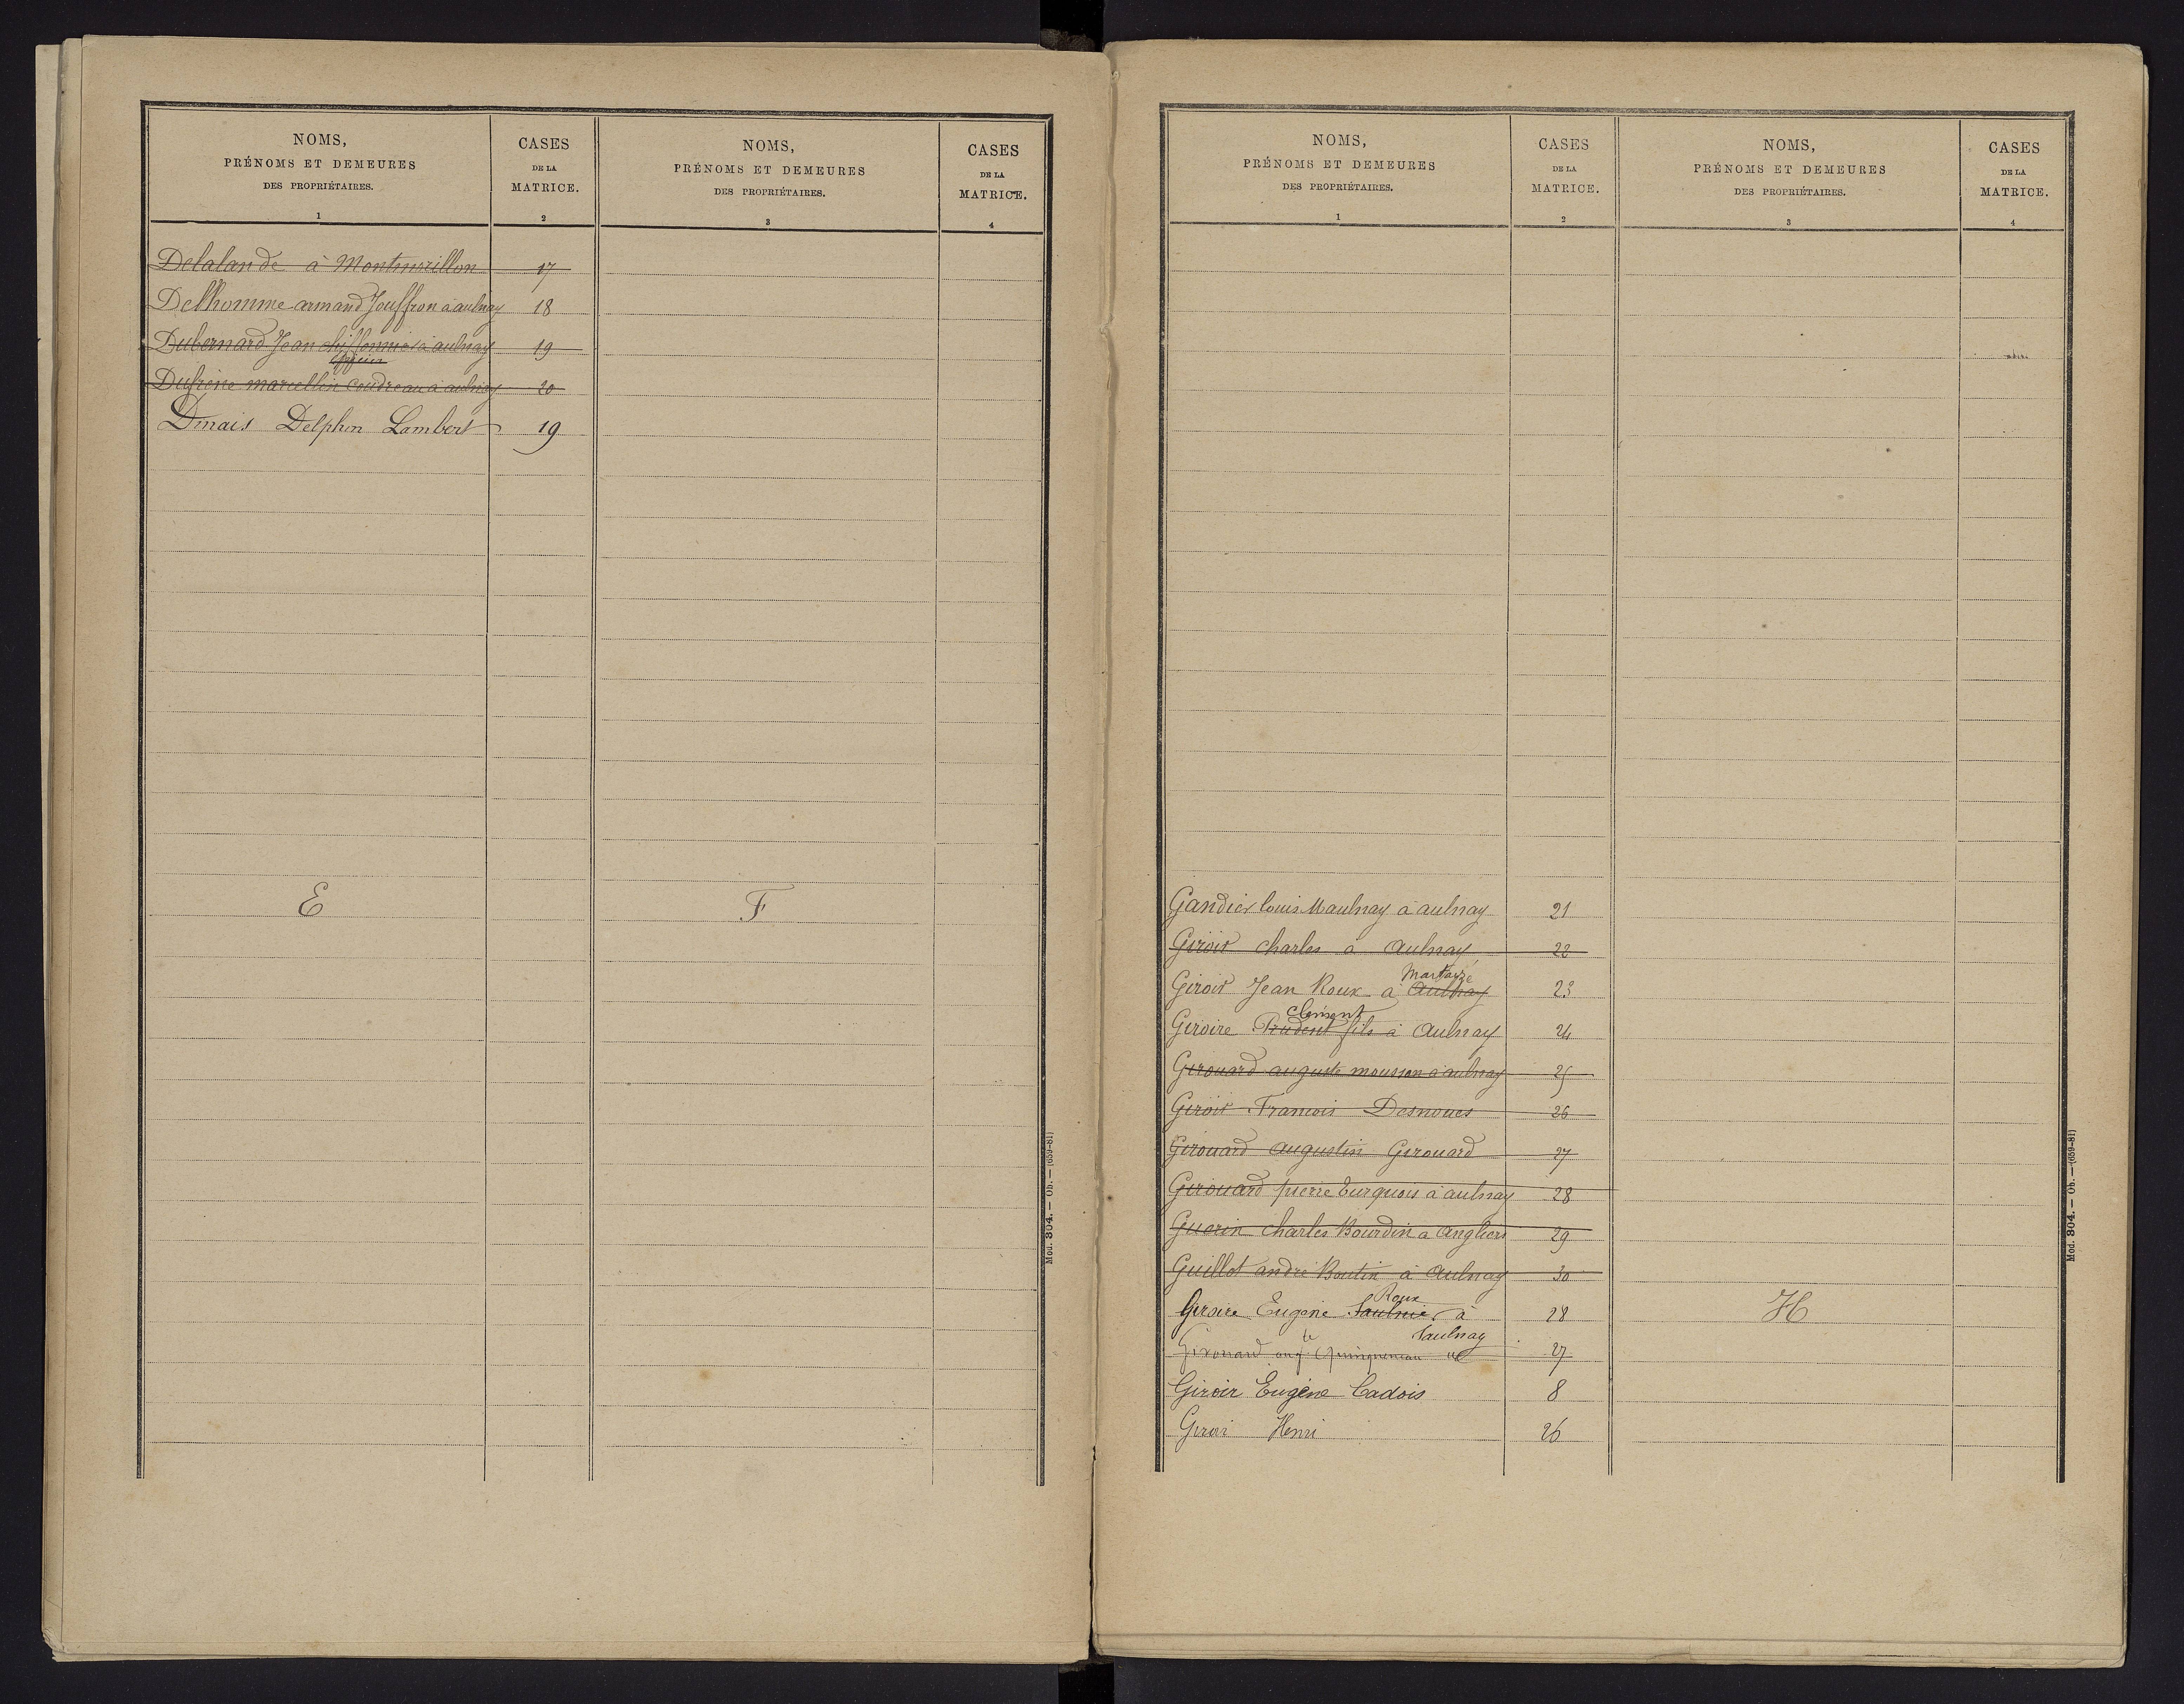 NOMS,
PRÉNOMS ET DEMEURES
DES PROPRIÉTAIRES.
1
CASES
DE LA
MATRICE.
2
NOMS,
PRÉNOMS ET DEMEURES
DES PROPRIÉTAIRES.
3
CASES
DE LA
MATRICE.
4
Delalande à Montmorillon 17
Delhomme armand Jouffron à aulnay 18
Dubernard Jean chiffonnier à aulnay 19
Dufrène marcellin Coudreau à aulnay 20
Dinais Delphin Lambert 19
E
F
Mod. 304. — Ob. — (659-81)
NOMS,
PRÉNOMS ET DEMEURES
DES PROPRIÉTAIRES.
1
CASES
DE LA
MATRICE.
2
NOMS,
PRÉNOMS ET DEMEURES
DES PROPRIÉTAIRES.
3
CASES
DE LA
MATRICE.
4
Gandier louis Maulnay à aulnay 21
Giroir charles à Aulnay 22
Martaizé
Giroir Jean Roux à Aulnay 23
Clément
Giroire Prudent fils à Aulnay 24
Girouard auguste mousson à aulnay 25
Giroir Francois Desnoues 26
Girouard augustin Girouard 27
Girouard pierre Turquois à aulnay 28
Guerin charles Bourdin à Angliers 29
Guillot andré Boutin à Aulnay 30
Roux
Giroire Eugène Saulnier à 28
Saulnay
Girouard augte Quinqueneau 27
Giroir Eugène Cadois 8
Giroir Henri 26
H
Mod. 304. — Ob. — (659-81)